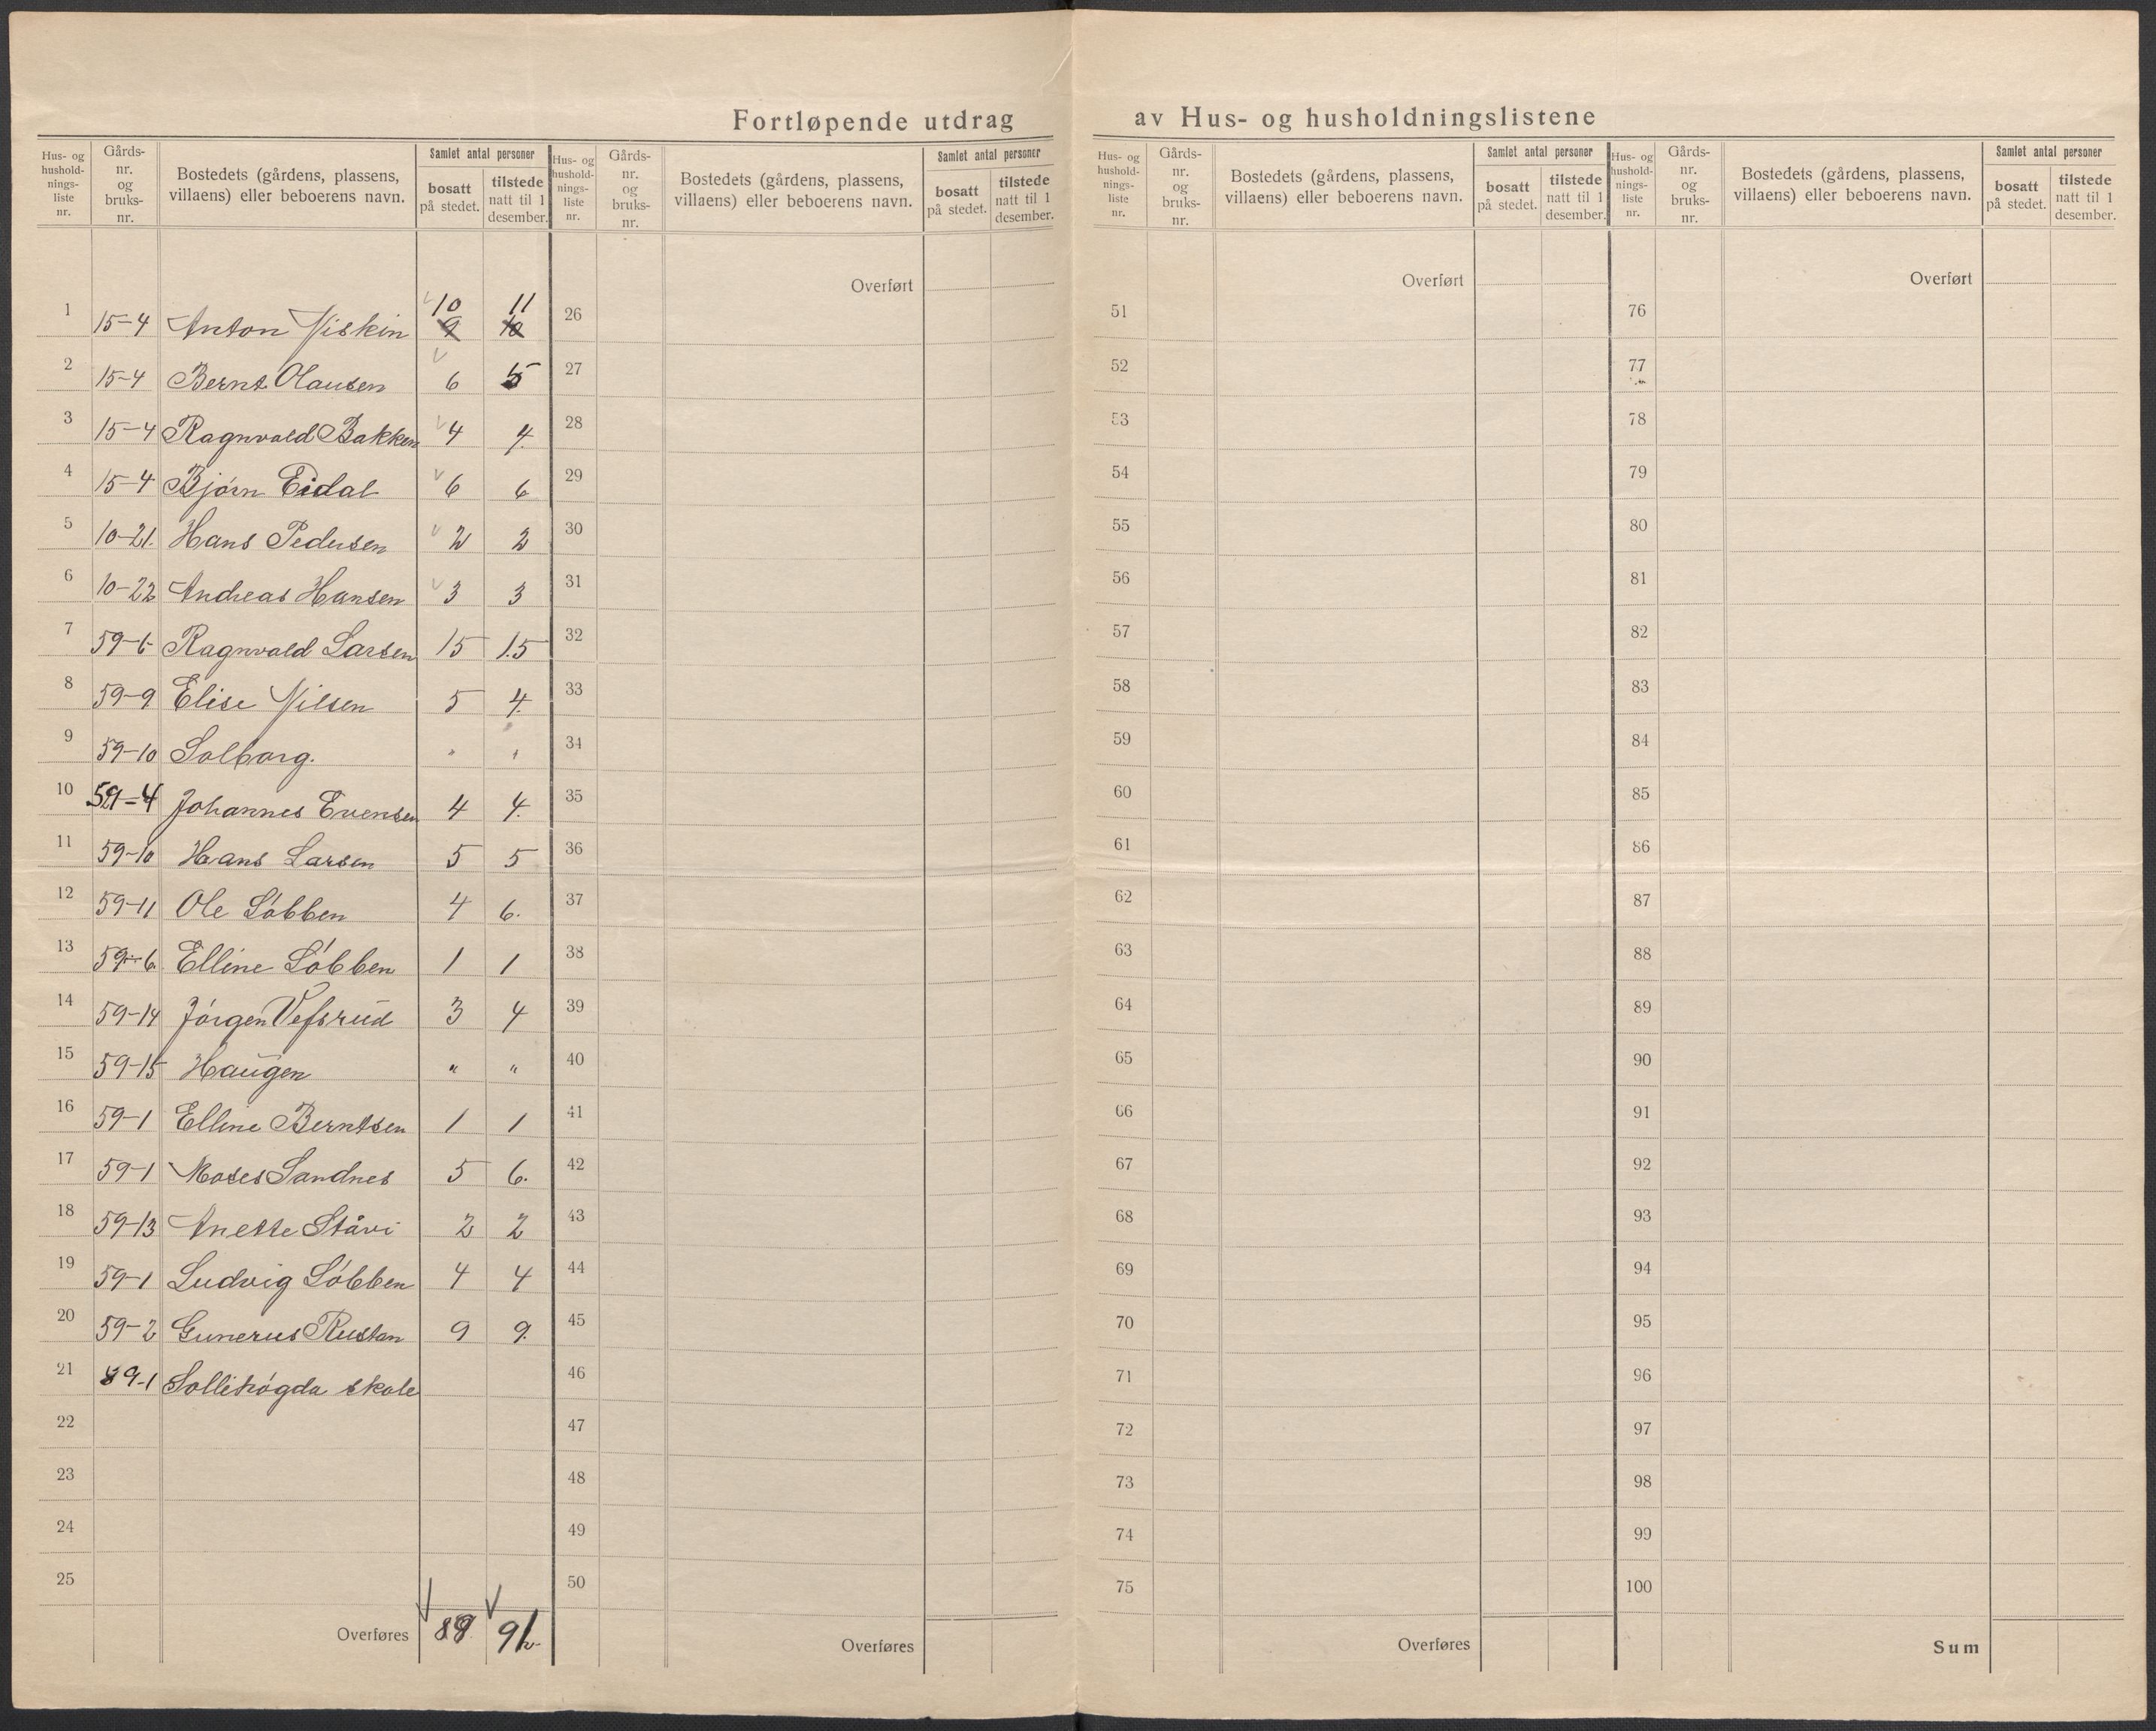 Fortløpende utdrag av Hus- og husholdningslistene
Hus- og hushold-nings-liste nr. Gårds-nr. og bruks-nr. Bostedets (gårdens, plassens, villaens) eller beboerens navn. Samlet antal personer bosatt på stedet. tilstede natt til 1 desember.
Hus- og hushold-nings-liste nr. Gårds-nr. og bruks-nr. Bostedets (gårdens, plassens, villaens) eller beboerens navn. Samlet antal personer bosatt på stedet. tilstede natt til 1 desember.
Hus- og hushold-nings-liste nr. Gårds-nr. og bruks-nr. Bostedets (gårdens, plassens, villaens) eller beboerens navn. Samlet antal personer bosatt på stedet. tilstede natt til 1 desember.
Hus- og hushold-nings-liste nr. Gårds-nr. og bruks-nr. Bostedets (gårdens, plassens, villaens) eller beboerens navn. Samlet antal personer bosatt på stedet. tilstede natt til 1 desember.
Overført Overført Overført
1 15-4 Anton Viskin 10 11 9 10 26 51 76
2 15-4 Bernt Olausen 6 5 27 52 77
3 15-4 Ragnvald Bakken 4 4. 28 53 78
4 15-4 Bjørn Eidal 6 6 29 54 79
5 10-21. Hans Pedersen 2 2 30 55 80
6 10-22 Andreas Hansen 3 3 31 56 81
7 59-6 Ragnvald Larsen 15 15 32 57 82
8 59-9 Elise Nilsen 5 4. 33 58 83
9 59-10 Solborg. " " 34 59 84
10 59-4 Johannes Evensen 4 4. 35 60 85
11 59-10 Hans Larsen 5 5 36 61 86
12 59-11 Ole Løbben 4 6. 37 62 87
13 59-6 Elline Løbben 1 1 38 63 88
14 59-14 Jørgen Vefsrud 3 4 39 64 89
15 59-15 Haugen " " 40 65 90
16 59-1 Elline Berntsen 1 1 41 66 91
17 59-1 Moses Sandnes 5 6. 42 67 92
18 59-13 Anette Ståvi 2 2 43 68 93
19 59-1 Ludvig Løbben 4 4 44 69 94
20 59-2 Gunerus Rustan 9 9. 45 70 95
21 89-1 Sollihøgda skole 46 71 96
22 47 72 97
23 48 73 98
24 49 74 99
25 50 75 100
Overføres 89 Overføres Overføres Sum